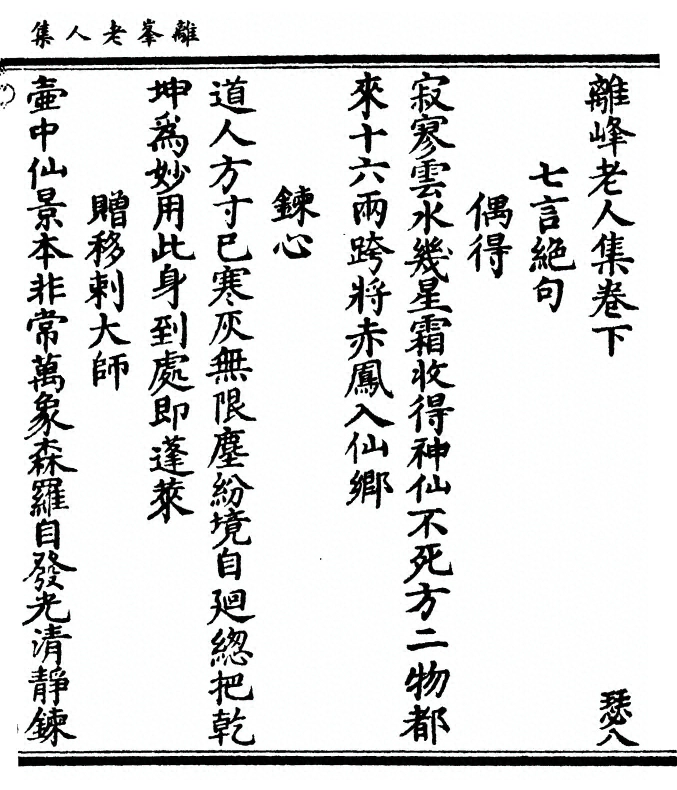 離峯老人集
離峰老人集卷下
瑟八
七言絕句
偶得
寂寥雲水幾星霜收得神仙不死方二物都
來十六兩跨將赤鳳入仙鄉
鍊心
道人方寸已寒灰無限塵紛境自廻緫把乾
坤為妙用此身到處即蓬萊
贈移剌大師
壷中仙景本非常萬象森羅自發光清靜鍊